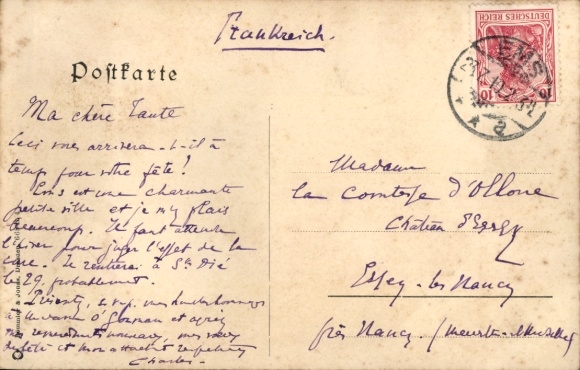 Frankreich.
DEUTSCHES REICH
10 10
EMS
Postkarte
Ma chère Tante
Ceci vous arrivera-t-il à
temps pour votre fête!
Ems est une charmante
petite ville et je m'y plais
beaucoup. Il faut attendre
l'hiver pour juger l'effet de la
cure. Je rentrerai à St Dié
le 29 probablement.
et agréez
mes vœux
de fête et mon attachement respectueux
Charles.
Madame
la Comtesse d'Ollone
Château d'Essey
Essey-les-Nancy
près Nancy. (Meurthe-&-Moselle)